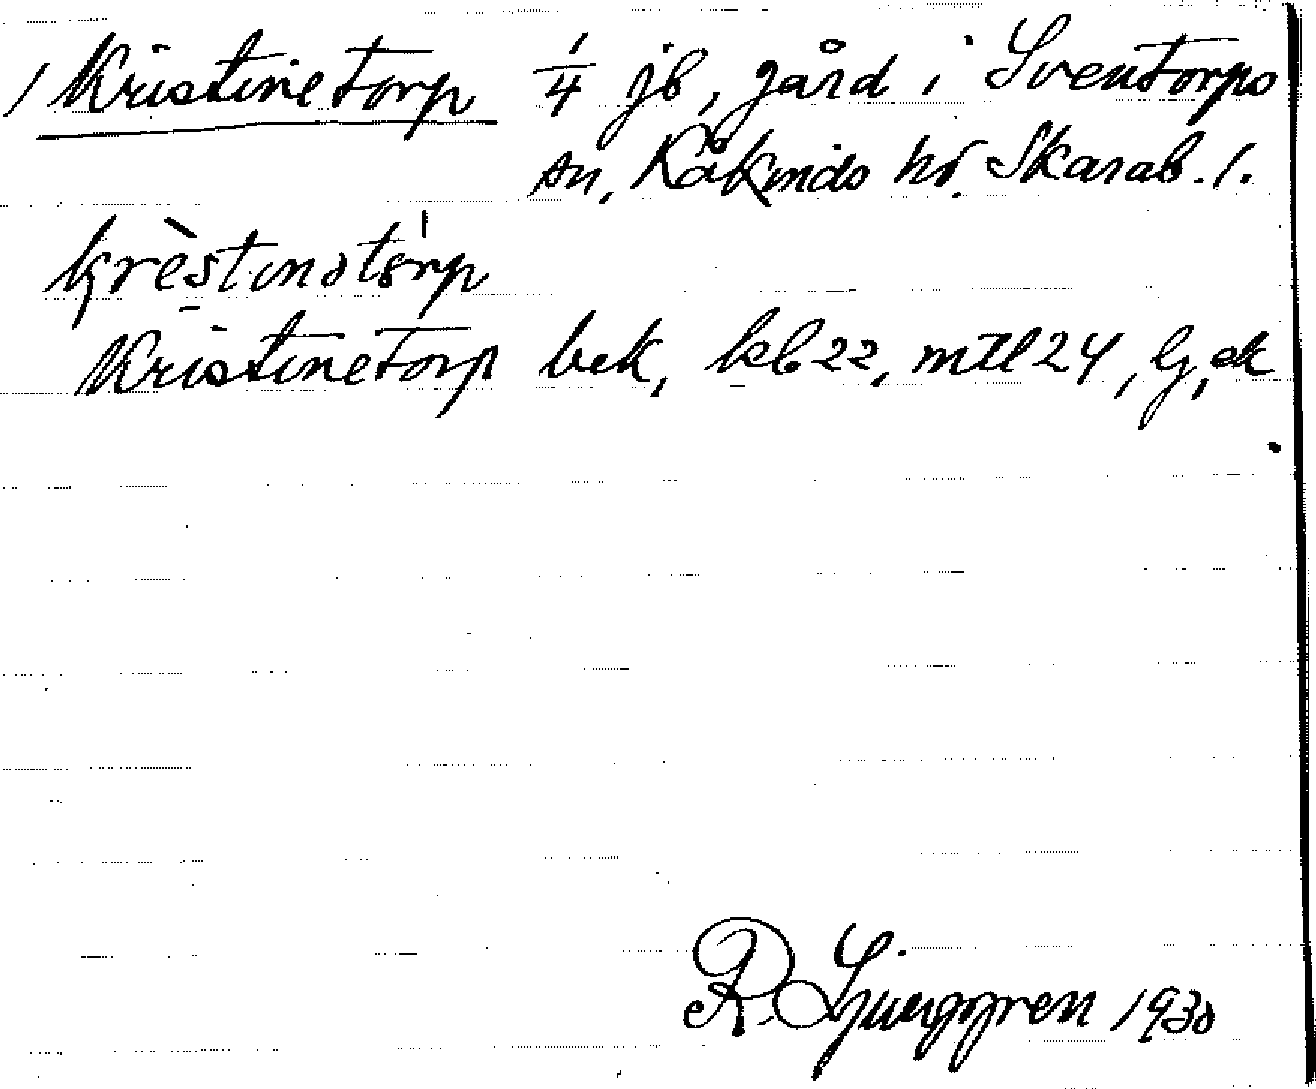 / Kristinetorp 1/4 jb, gård i Sventorps
sn, Kåkinds hd. Skarab. l.
krèstinətórp
Kristinetorp bek, kb 22, mtl 24, Gj, ek
R Ljunggren 1930